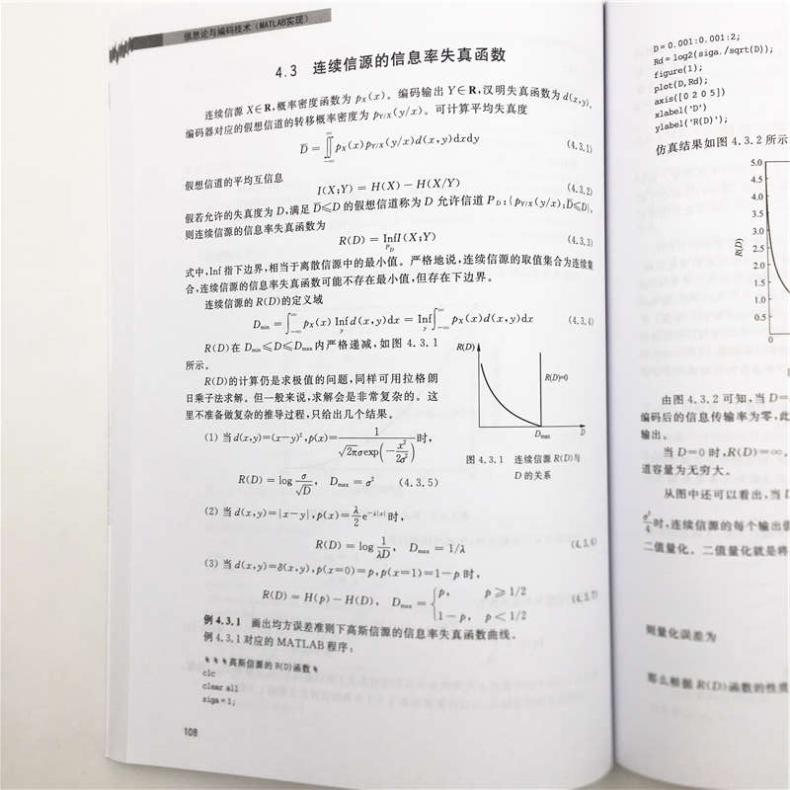 信息论与编码技术（MATLAB实现）
4.3 连续信源的信息率失真函数
连续信源 X∈R,概率密度函数为 pX(x)。编码输出 Y∈R,汉明失真函数为 d(x,y),
编码器对应的假想信道的转移概率密度为 pY/X(y/x)。可计算平均失真度
D̄ = ∬_{-∞}^{∞} pX(x)pY/X(y/x)d(x,y)dxdy (4.3.1)
假想信道的平均互信息
I(X;Y) = H(X) − H(X/Y) (4.3.2)
假若允许的失真度为 D,满足 D̄≤D 的假想信道称为 D 允许信道 PD:{pY/X(y/x);D̄≤D},
则连续信源的信息率失真函数为
R(D) = Inf_{PD} I(X;Y) (4.3.3)
式中,Inf 指下边界,相当于离散信源中的最小值。严格地说,连续信源的取值集合为连续集
合,连续信源的信息率失真函数可能不存在最小值,但存在下边界。
连续信源的 R(D)的定义域
Dmin = ∫_{-∞}^{∞} pX(x) Inf_y d(x,y)dx = Inf_y ∫_{-∞}^{∞} pX(x)d(x,y)dx (4.3.4)
R(D)在 Dmin≤D≤Dmax内严格递减,如图 4.3.1
所示。
R(D)的计算仍是求极值的问题,同样可用拉格朗
日乘子法求解。但一般来说,求解会是非常复杂的。这
里不准备做复杂的推导过程,只给出几个结果。
R(D)
R(D)=0
Dmax
D
图 4.3.1 连续信源 R(D)与
D 的关系
(1) 当 d(x,y)=(x−y)²,p(x)= 1/(√(2π)σexp(−x²/2σ²)) 时,
R(D) = log σ/√D, Dmax = σ² (4.3.5)
(2) 当 d(x,y)=|x−y|,p(x)= λ/2 e^{−λ|x|} 时,
R(D) = log 1/(λD), Dmax = 1/λ (4.3.6)
(3) 当 d(x,y)=δ(x,y),p(x=0)=p,p(x=1)=1−p 时,
R(D) = H(p) − H(D), Dmax = { p, p≥1/2
1−p, p<1/2 (4.3.7)
例 4.3.1 画出均方误差准则下高斯信源的信息率失真函数曲线。
例 4.3.1 对应的 MATLAB 程序:
%%%高斯信源的 R(D)函数%
clc
clear all
siga=1;
108
D=0.001:0.001:2;
Rd=log2(siga./sqrt(D));
figure(1);
plot(D,Rd);
axis([0 2 0 5])
xlabel('D')
ylabel('R(D)');
仿真结果如图 4.3.2 所示
5.0
4.5
4.0
3.5
3.0
2.5
2.0
1.5
1.0
0.5
0
R(D)
由图 4.3.2 可知,当 D=
编码后的信息传输率为零,此
输出。
当 D=0 时,R(D)=∞,
道容量为无穷大。
从图中还可以看出,当
σ²/4 时,连续信源的每个输出
二值量化。二值量化就是将
则量化误差为
那么根据 R(D)函数的性质